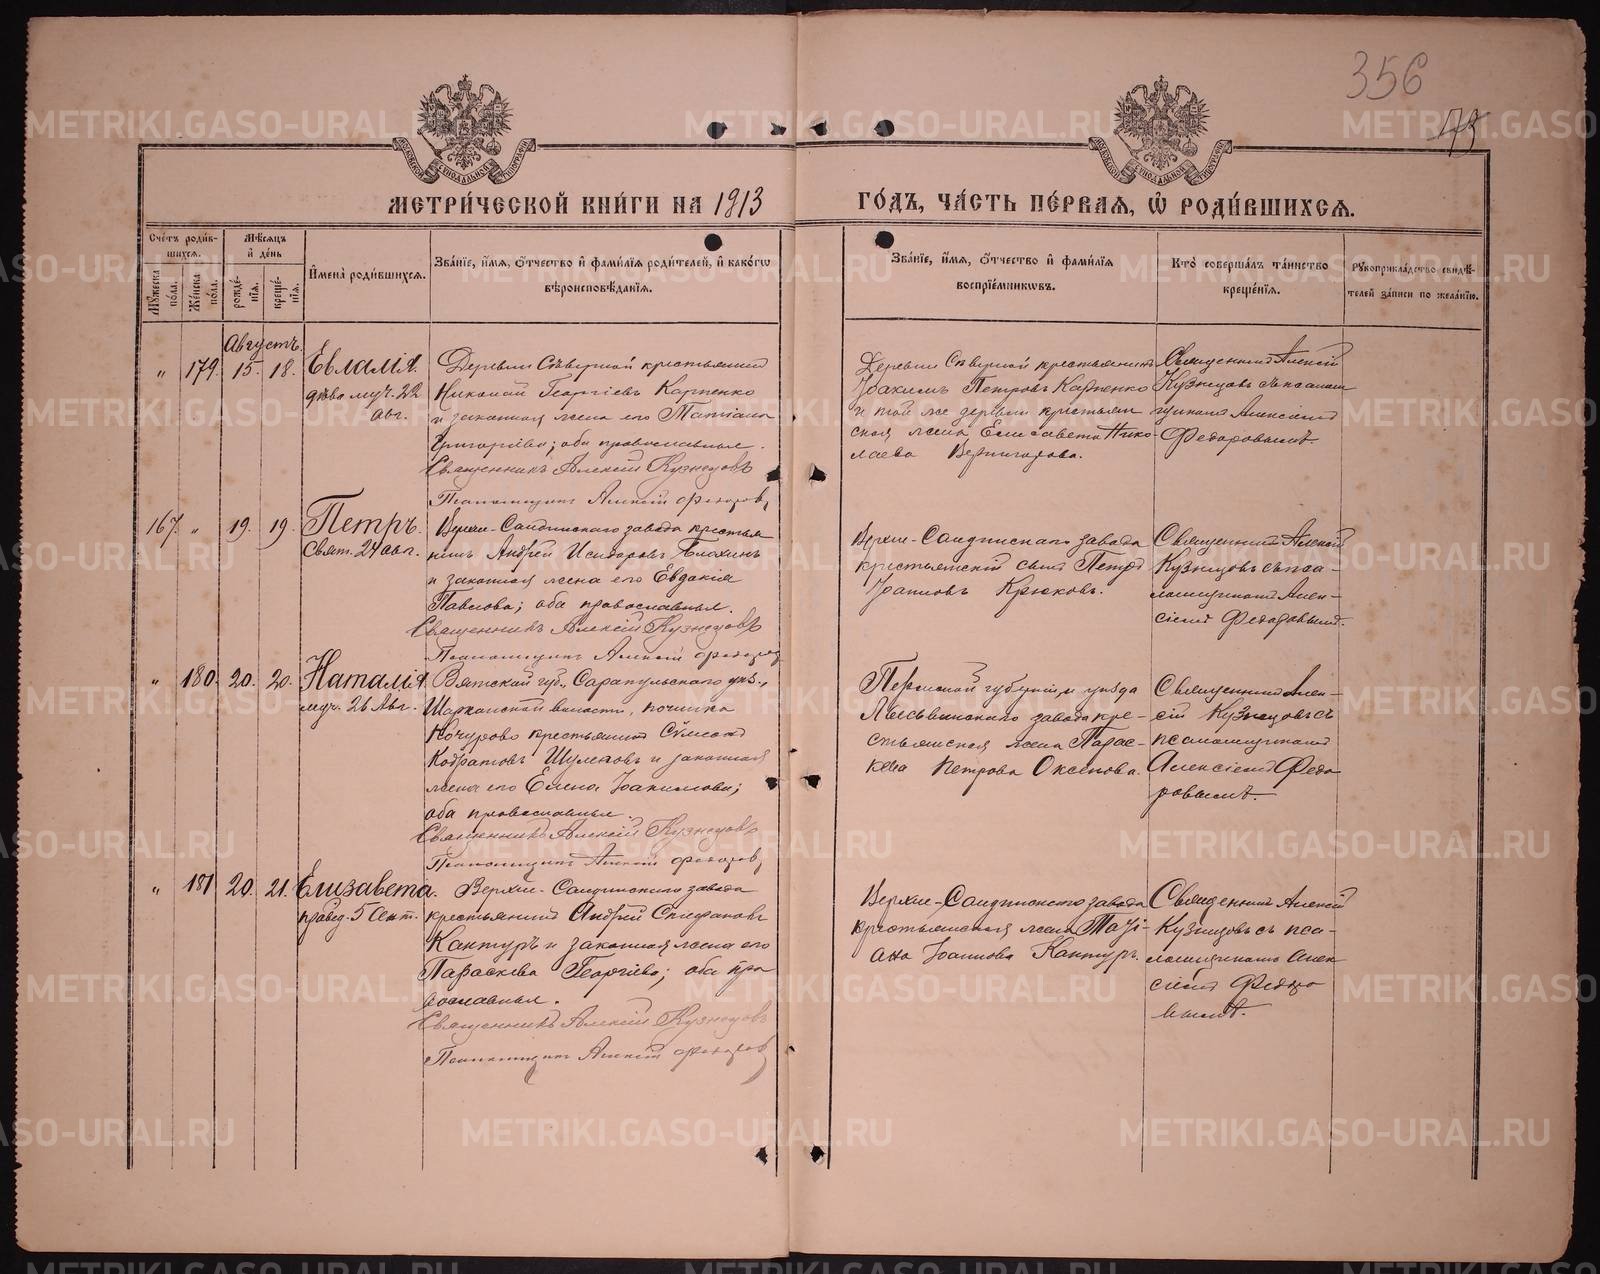 356
МЕТРИ́ЧЕСКОЙ КНИ́ГИ НА 1913
ГО́ДЪ, ЧА́СТЬ ПЕ́РВАЯ, Ѡ҆ РОДИ́ВШИХСЯ.
Сче́тъ роди́в-
шихся.
Му́жеска по́ла.
Же́нска по́ла.
Мѣ́сяцъ и҆ де́нь
рожде́-
нїѧ.
креще́-
нїѧ.
И҆мена̀ роди́вшихся.
Зва́нїе, и҆́мѧ, ѻ҆́тчество и҆ фами́лїѧ роди́телей, и҆ како́гѡ
вѣроисповѣ́данїѧ.
Зва́нїе, и҆́мѧ, ѻ҆́тчество и҆ фами́лїѧ
воспрїе́мникѡвъ.
Кто̀ соверша́лъ та́инство
креще́нїѧ.
Рꙋкоприкла́дство свидѣ́-
телей за́писи по жела́нїю.
Августъ.
" 179. 15. 18. Евламія.
дѣво муч. 22
авг.
Деревни Сѣверной крестьянинъ
Николай Георгіевъ Карпенко
и законная жена его Татіана
Григоріева; оба православные.
Священникъ Алексій Кузнецовъ
Псаломщикъ Алексій Федоровъ
Деревни Сѣверной крестьянинъ
Іоакимъ Петровъ Карпенко
и той же деревни крестьян
ская жена Елисавета Нико-
лаева
Священникъ Алексій
Кузнецовъ съ псалом
щикомъ Алексіемъ
Федоровымъ.
167. " 19. 19. Петръ.
Свят. 24 авг.
Верхне-Салдинскаго завода крестья
нинъ Андрей Исидоровъ Блохинъ
и законная жена его Евдокія
Павлова; оба православные.
Священникъ Алексій Кузнецовъ
Псаломщикъ Алексій Федоровъ
Верхне-Салдинскаго завода
крестьянскій сынъ Петръ
Іоанновъ Крюковъ.
Священникъ Алексій
Кузнецовъ съ пса-
ломщикомъ Алек-
сіемъ Федоровымъ.
" 180. 20. 20. Наталія
муч. 26 Авг.
Вятской губ., Сарапульскаго уѣз.,
Шарканской волости, починка
Кочурово крестьянинъ Сѵмеонъ
Кодратовъ и законная
жена его Елена Іоакимова;
оба православные.
Священникъ Алексій Кузнецовъ
Псаломщикъ Алексій Федоровъ
Пермской губерніи и уѣзда
Лысьвинскаго завода кре-
стьянская жена Парас-
кева Петрова
Священникъ Алек-
сій Кузнецовъ съ
псаломщикомъ
Алексіемъ Федо
ровымъ.
" 181 20. 21. Елизавета.
правед. 5 Сент.
Верхне-Салдинскаго завода
крестьянинъ Андрей Стефановъ
Кантуръ и законная жена его
Параскева Георгіева; оба пра
вославные.
Священникъ Алексій Кузнецовъ
Псаломщикъ Алексій Федоровъ
Верхне-Салдинскаго завода
крестьянская жена Таті-
ана Іоаннова Кантуръ.
Священникъ Алексій
Кузнецовъ съ пса-
ломщикомъ Алек
сіемъ Федоро
вымъ.
METRIKI.GASO-URAL.RU